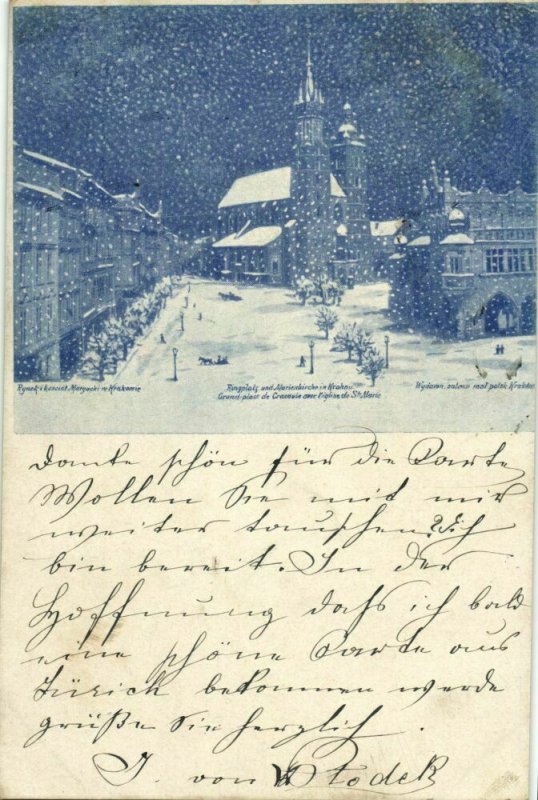 Rynek i kościół Maryacki w Krakowie
Ringplatz und Marienkirche in Krakau
Grand-place de Cracovie avec l'église de Ste Marie
Wydawn. salonu mal. polsk. Kraków
Danke schön für die Carte
Wollen Sie mit mir
weiter tauschen? Ich
bin bereit. In der
Hoffnung dass ich bald
eine schöne Carte aus
Zürich bekommen werde
grüße Sie herzlich.
J. von Wlodek